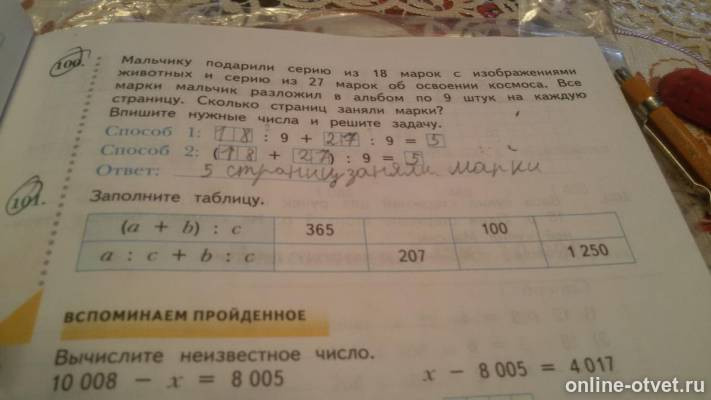 100. Мальчику подарили серию из 18 марок с изображениями
животных и серию из 27 марок об освоении космоса. Все
марки мальчик разложил в альбом по 9 штук на каждую
страницу. Сколько страниц заняли марки?
Впишите нужные числа и решите задачу.
Способ 1: 18 : 9 + 27 : 9 = 5
Способ 2: (18 + 27) : 9 = 5
Ответ: 5 страниц заняли марки
101. Заполните таблицу.
(a + b) : c 365 100
a : c + b : c 207 1 250
ВСПОМИНАЕМ ПРОЙДЕННОЕ
Вычислите неизвестное число.
10 008 − x = 8 005 x − 8 005 = 4 017
online-otvet.ru